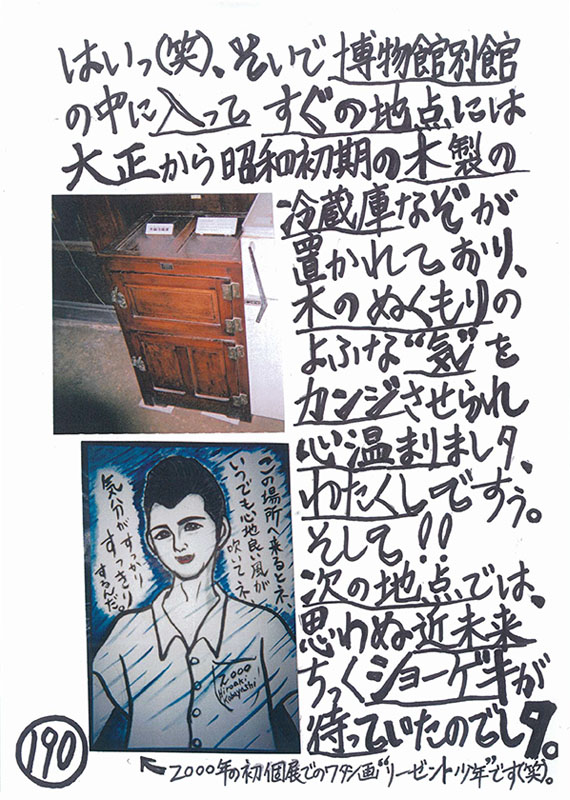 はいっ(笑)、そいで博物館別館
の中に入ってすぐの地点には
大正から昭和初期の木製の
冷蔵庫なぞが
置かれており、
木のぬくもりの
よふな“気”を
カンジさせられ
心温まりまし夕、
わたくしですぅ。
そして!!
次の地点では、
思わぬ近未来
ちっくショーゲキが
待っていたのでし夕。
この場所へ来るとネ、
いつでも心地良い風が
吹いてネ
気分がすっかり
すっきり
するんだ。
2000
Hiroaki
Kobayashi
190
←2000年の初個展でのワタシ画“リーゼント少年”です(笑)。